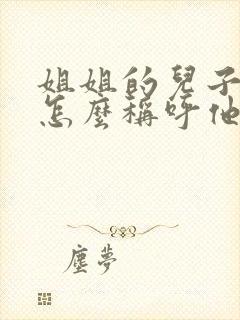 姐姐的兒子
怎麼稱呼他
塵夢